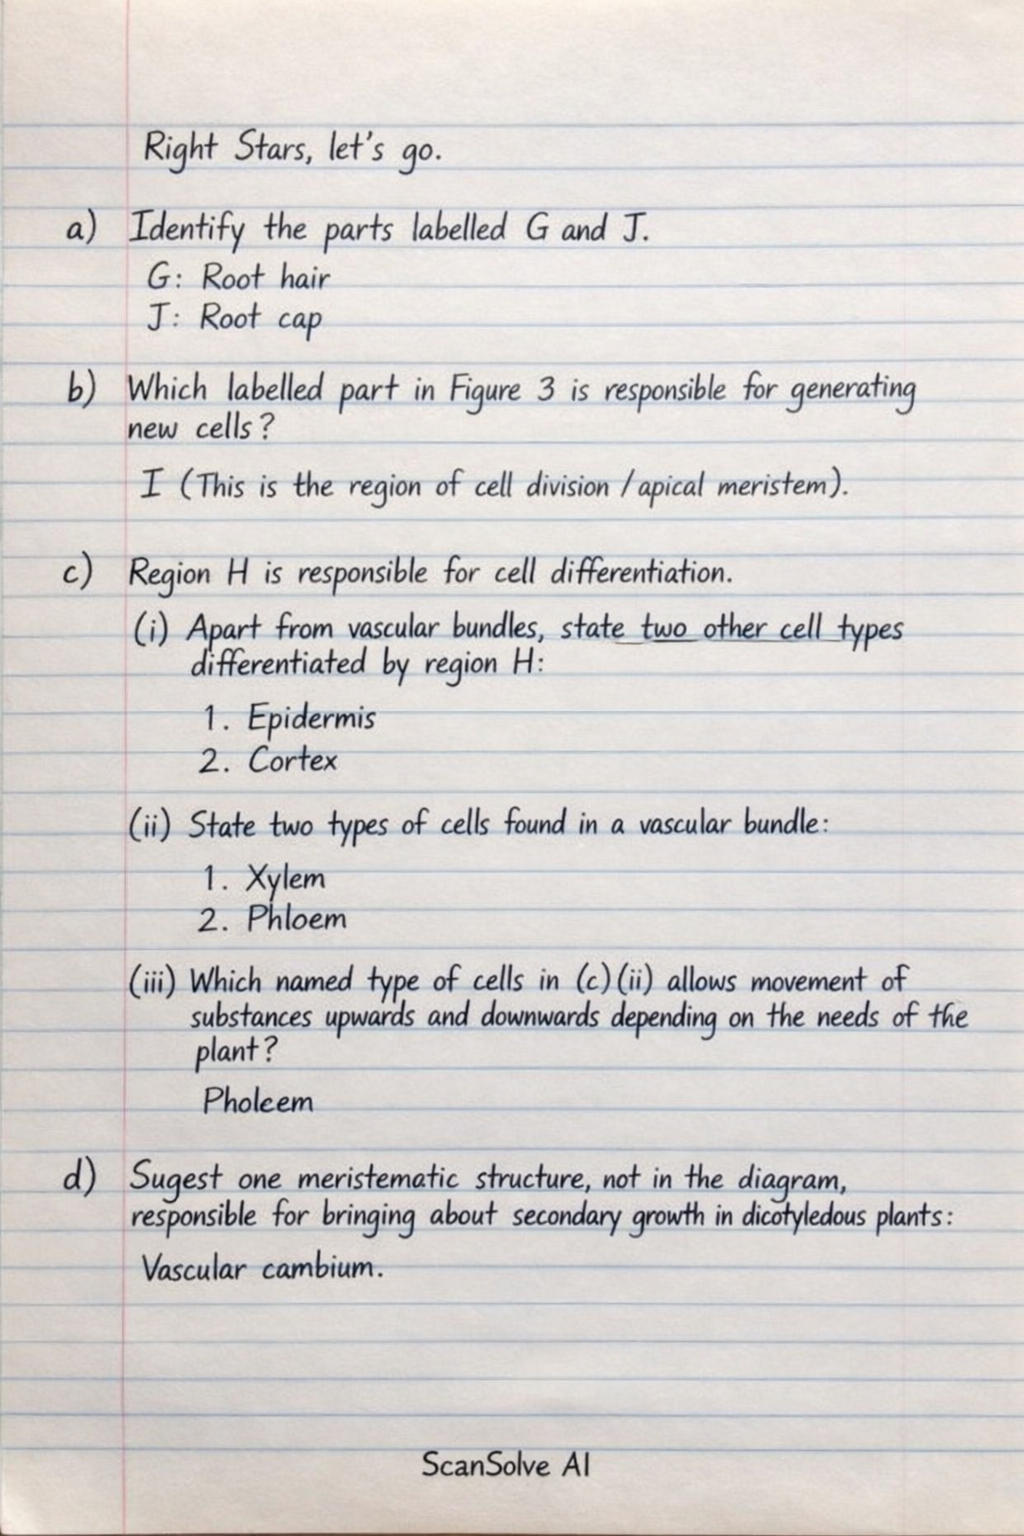 Right Stars, let's go.
a) Identify the parts labelled G and J.
G: Root hair
J: Root cap
b) Which labelled part in Figure 3 is responsible for generating
new cells?
I (This is the region of cell division / apical meristem).
c) Region H is responsible for cell differentiation.
(i) Apart from vascular bundles, state two other cell types
differentiated by region H:
1. Epidermis
2. Cortex
(ii) State two types of cells found in a vascular bundle:
1. Xylem
2. Phloem
(iii) Which named type of cells in (c)(ii) allows movement of
substances upwards and downwards depending on the needs of the
plant?
Pholeem
d) Sugest one meristematic structure, not in the diagram,
responsible for bringing about secondary growth in dicotyledous plants:
Vascular cambium.
ScanSolve AI